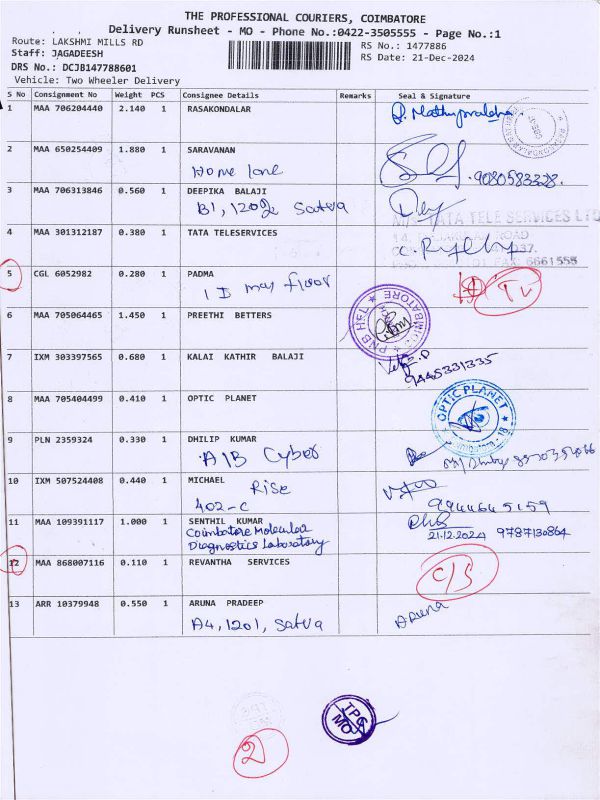 THE PROFESSIONAL COURIERS, COIMBATORE
Delivery Runsheet - MO - Phone No.:0422-3505555 - Page No.:1
Route: LAKSHMI MILLS RD
RS No.: 1477886
Staff: JAGADEESH
RS Date: 21-Dec-2024
DRS No.: DCJB147788601
Vehicle: Two Wheeler Delivery
S No Consignment No Weight PCS Consignee Details Remarks Seal & Signature
1 MAA 706204440 2.140 1 RASAKONDALAR
2 MAA 650254409 1.880 1 SARAVANAN
Home lane
9080583328.
3 MAA 706313846 0.560 1 DEEPIKA BALAJI
B1, 1202 Satva
4 MAA 301312187 0.380 1 TATA TELESERVICES
TATA TELE SERVICES LTD
ROAD
6661555
5 CGL 6052982 0.280 1 PADMA
floor
6 MAA 705064465 1.450 1 PREETHI BETTERS
7 IXM 303397565 0.680 1 KALAI KATHIR BALAJI
9445331335
8 MAA 705404499 0.410 1 OPTIC PLANET
OPTIC PLANET
9 PLN 2359324 0.330 1 DHILIP KUMAR
A/B Cyber
10 IXM 507524408 0.440 1 MICHAEL
Rise
402-C
9944645159
11 MAA 109391117 1.000 1 SENTHIL KUMAR
Coimbatore Molecular
Diagnostics Laboratory
21.12.2024 9787130864
12 MAA 868007116 0.110 1 REVANTHA SERVICES
C/S
13 ARR 10379948 0.550 1 ARUNA PRADEEP
A4, 1201, Satva
Aruna
TPC
MO
2